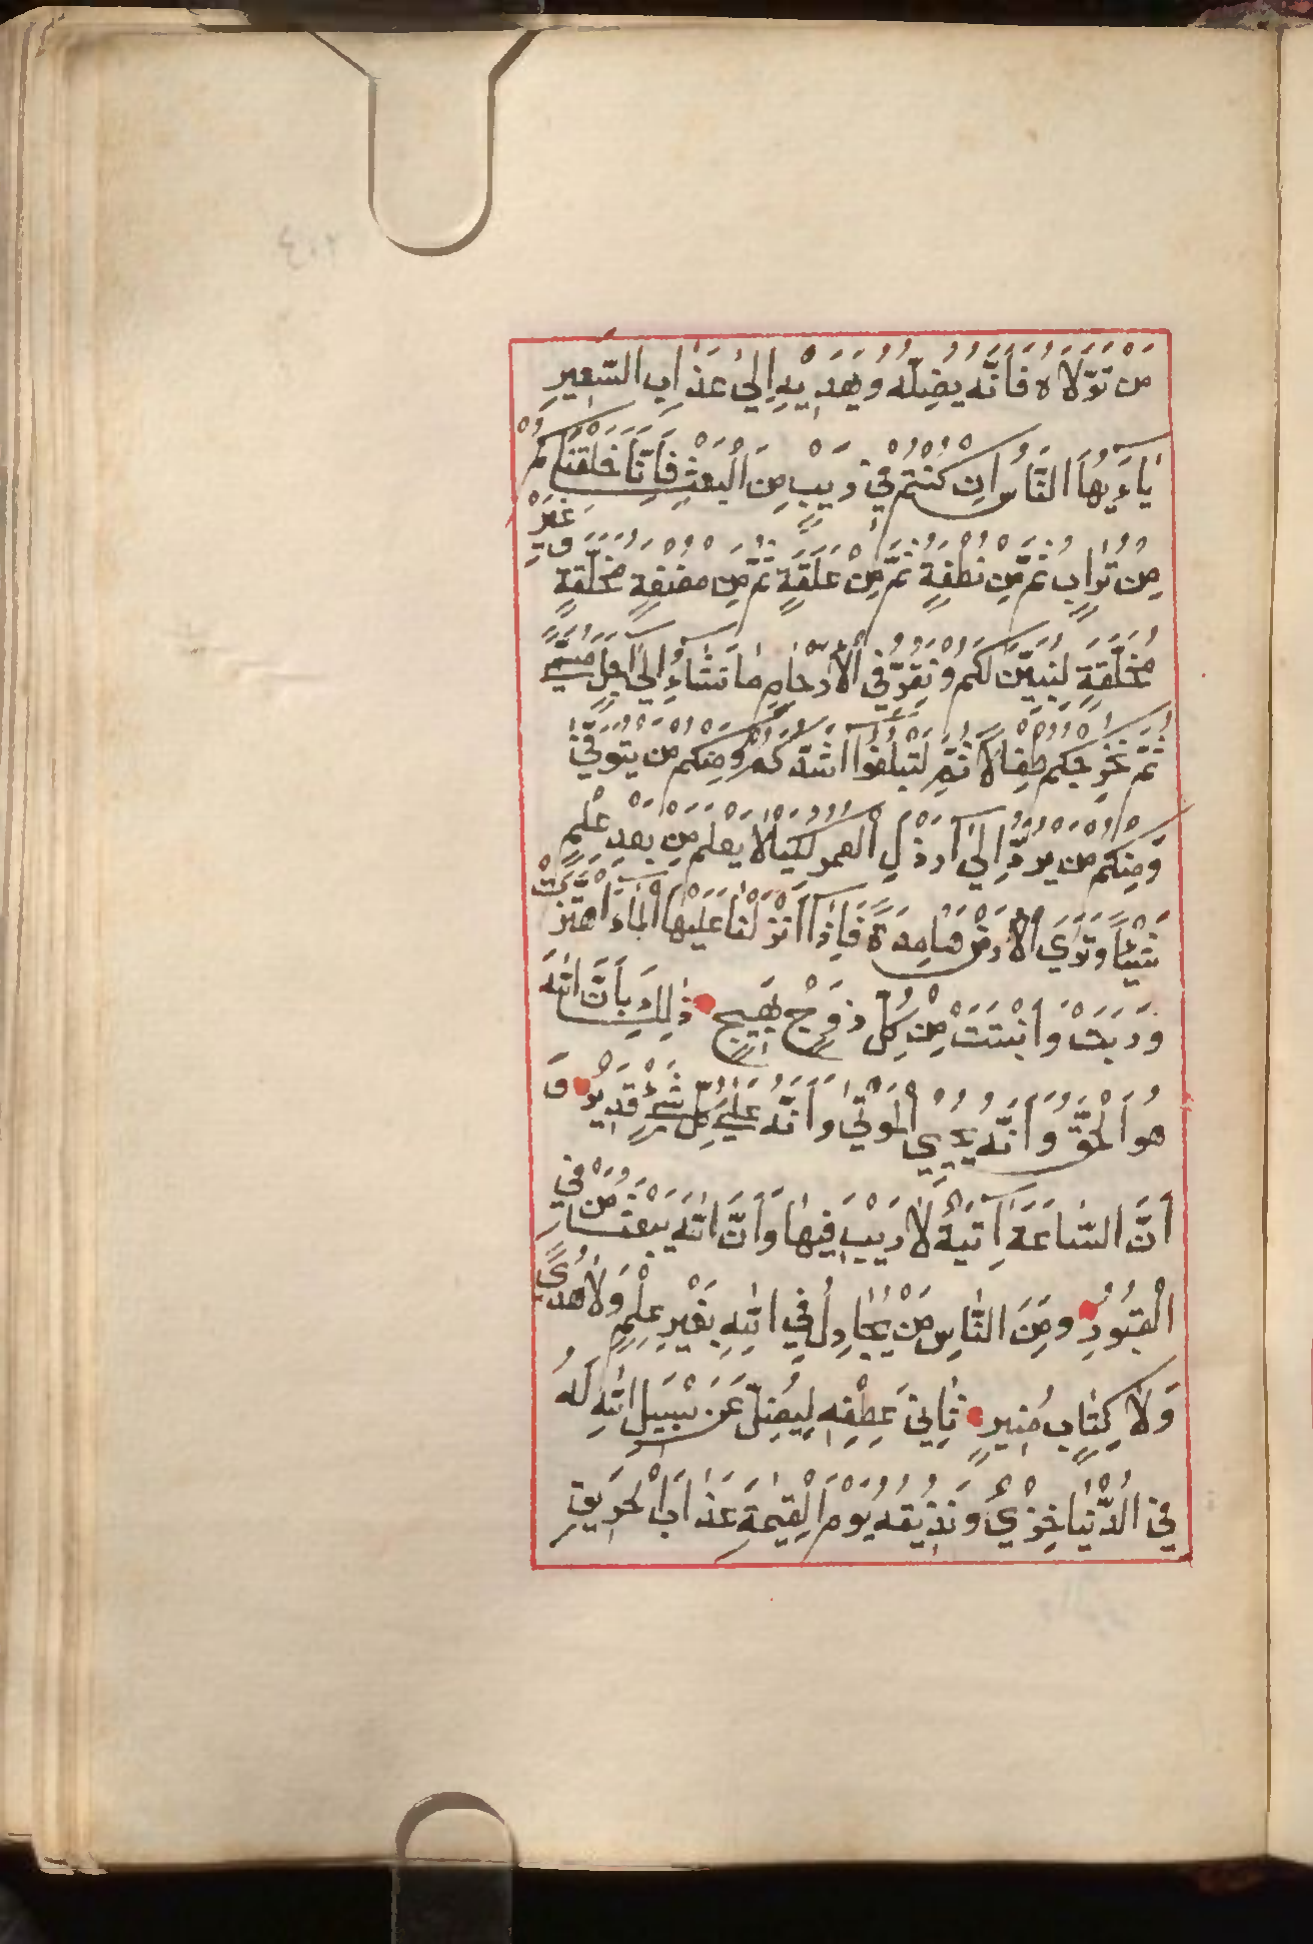 ٢٠٤
مَنْ تَوَلَّاهُ فَاَنَّهُ يُضِلُّهُ وَيَهْدِيْهِ اِلىٰ عَذَابِ السَّعِيرِ
يٰاَءَيُّهَا النَّاسُ اِنْ كُنْتُمْ فِيْ رَيْبٍ مِنَ الْبَعْثِ فَاِنَّا خَلَقْنَاكُمْ
مِنْ تُرَابٍ ثُمَّ مِنْ نُطْفَةٍ ثُمَّ مِنْ عَلَقَةٍ ثُمَّ مِنْ مُضْغَةٍ مُخَلَّقَةٍ وَغَيْرِ
مُخَلَّقَةٍ لِنُبَيِّنَ لَكُمْ وَنُقِرُّ فِي الْاَرْحَامِ مَا نَشَاءُ اِلىٰ اَجَلٍ مُسَمًّي
ثُمَّ نُخْرِجُكُمْ طِفْلًا ثُمَّ لِتَبْلُغُوا اَشُدَّكُمْ وَمِنْكُمْ مَنْ يُتَوَفّيٰ
وَمِنْكُمْ مَنْ يُرَدُّ اِلىٰ اَرْذَلِ الْعُمُرِ لِكَيْلَا يَعْلَمَ مِنْ بَعْدِ عِلْمٍ
شَيْئًا وَتَرَي الْاَرْضَ هَامِدَةً فَاِذَا اَنْزَلْنَا عَلَيْهَا الْمَاءَ اهْتَزَّتْ
وَرَبَتْ وَاَنْبَتَتْ مِنْ كُلِّ زَوْجٍ بَهِيجٍ ذٰلِكَ بِاَنَّ اللّٰهَ
هُوَ الْحَقُّ وَاَنَّهُ يُحْيِي الْمَوْتيٰ وَاَنَّهُ عَلىٰ كُلِّ شَيْءٍ قَدِيرٌ وَ
اَنَّ السَّاعَةَ اٰتِيَةٌ لَا رَيْبَ فِيهَا وَاَنَّ اللّٰهَ يَبْعَثُ مَنْ فِي
الْقُبُورِ وَمِنَ النَّاسِ مَنْ يُجَادِلُ فِي اللّٰهِ بِغَيْرِ عِلْمٍ وَلَا هُدًي
وَلَا كِتَابٍ مُنِيرٍ ثَانِيَ عِطْفِهِ لِيُضِلَّ عَنْ سَبِيلِ اللّٰهِ لَهُ
فِي الدُّنْيَا خِزْيٌ وَنُذِيقُهُ يَوْمَ الْقِيٰمَةِ عَذَابَ الْحَرِيقِ